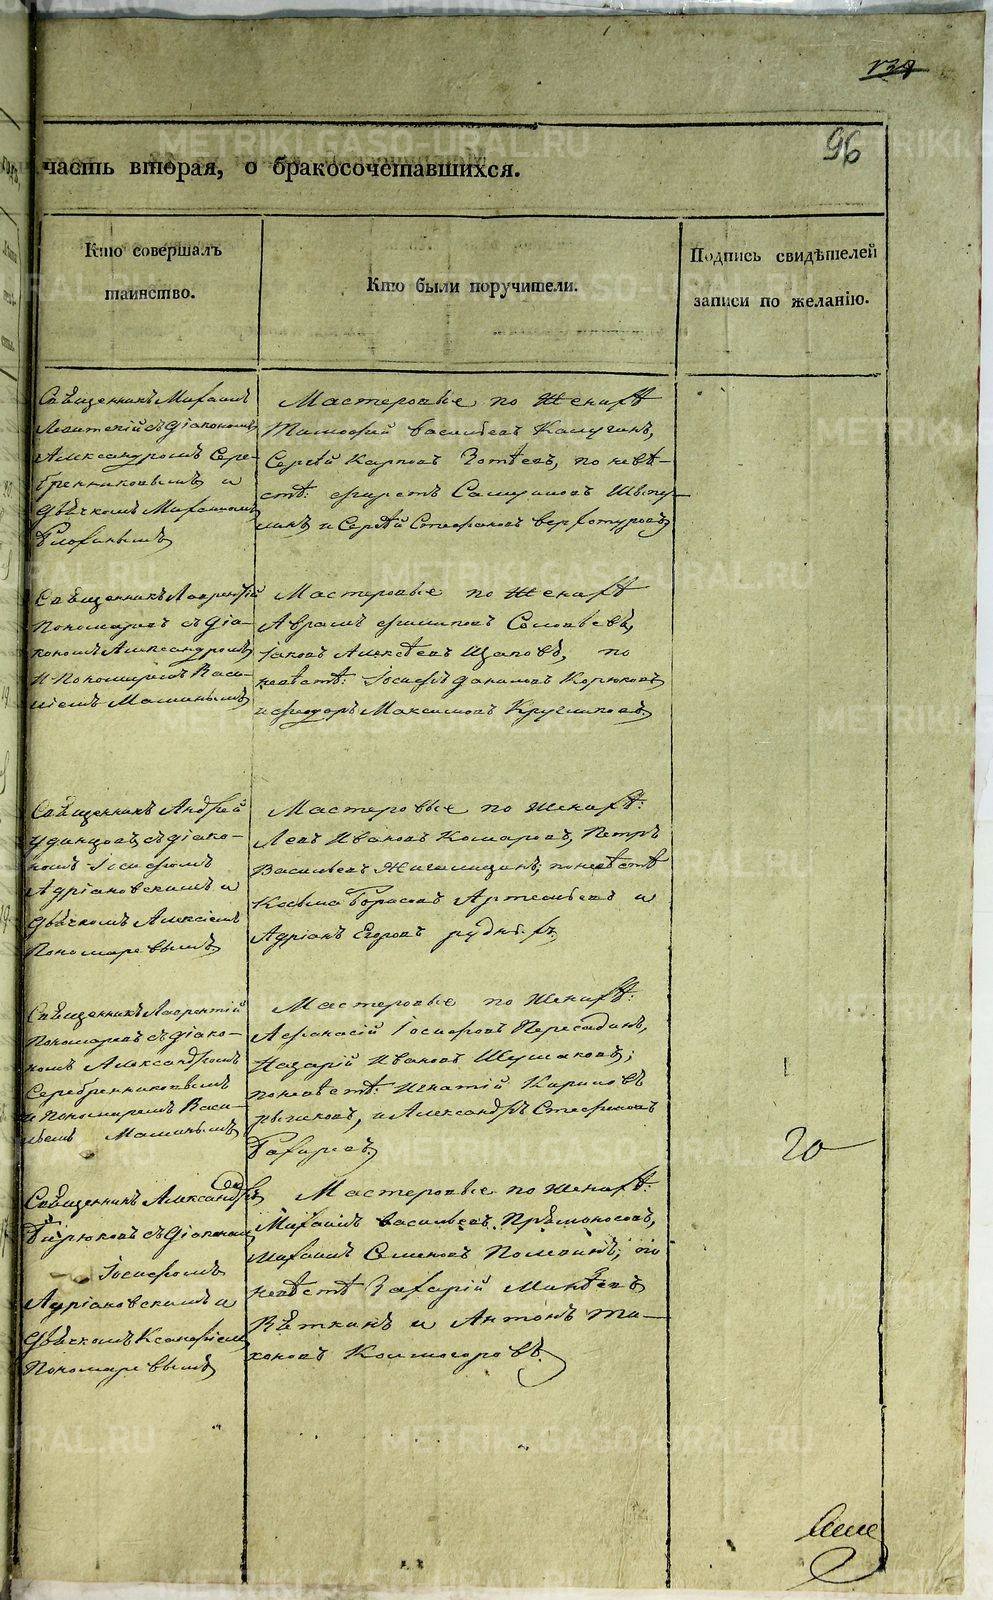 96
часть вторая, о бракосочетавшихся.
Кто совершалъ
таинство.
Кто были поручители.
Подпись свидѣтелей
записи по желанію.
Священникъ Михаилъ
Левитскій съ діакономъ
Александромъ Сере-
бренниковымъ и
дьячкомъ Михаиломъ
Мастеровые по женихѣ
Тимофей Васильевъ Калугинъ,
Сергѣй Карповъ Зотѣевъ, по невѣ-
стѣ:
и Сергѣй Стефановъ Верхотуровъ
Священникъ Лаврентій
Пономаревъ съ діа-
кономъ Александромъ
и пономаремъ Васи-
ліемъ Маминымъ
Мастеровые по женихѣ
Аврамъ Филиповъ Соловьевъ,
Іаковъ Алексѣевъ Щаповъ, по
невѣстѣ: Іосифъ Даниловъ Корюковъ
и Федоръ Максимовъ Кругликовъ
Священникъ Андрей
Удинцовъ съ діако-
номъ Іосифомъ
Адріановскимъ и
дьячкомъ Алексіемъ
Пономаревымъ
Мастеровые по женихѣ:
Левъ Ивановъ Комаровъ, Петръ
Васильевъ по невѣстѣ
Козьма Борисовъ Артемьевъ и
Адріанъ Егоровъ
Священникъ Лаврентій
Пономаревъ съ діако-
номъ Александромъ
Серебренниковымъ
и пономаремъ Васи-
льемъ Маминымъ
Мастеровые по женихѣ:
Афанасій Іосифовъ Пересадинъ,
Назарій Ивановъ Шушаковъ;
по невѣстѣ: Игнатій Кириловъ
и Александръ Стефановъ
20
Священникъ Александръ
Бирюковъ съ діакономъ
Іосифомъ
Адріановскимъ и
дьячкомъ Ксенофонтомъ
Пономаревымъ
Мастеровые по женихѣ:
Михаилъ Васильевъ Прямоносовъ,
Михаилъ Семеновъ по
невѣстѣ Захарій Минѣевъ
Вяткинъ и Антонъ Ти-
хоновъ Колмогоровъ.
METRIKI.GASO-URAL.RU